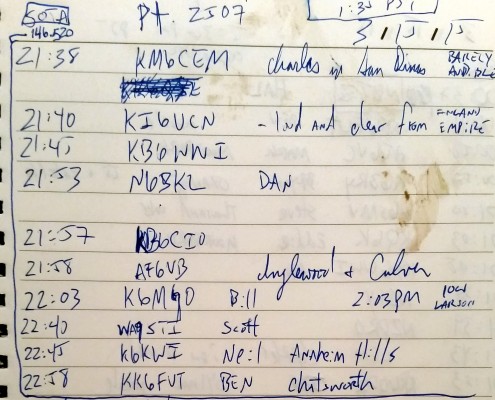 SOTA Pt. 2507 1:35 PST
146.520 3/15/15
21:38 KM6CEM Charles in San Dimas BARELY AUDIBLE
21:40 KI6UCN - loud and clear from INLAND EMPIRE
21:45 KB6WWI
21:53 N6BKL DAN
21:57 KB6CIO
21:58 AF6VB Inglewood & Culver
22:03 K6MGO Bill 2:03PM
22:40 WA9STI Scott
22:45 K6KWI Neil Anaheim Hills
22:58 KK6FUT BEN Chatsworth